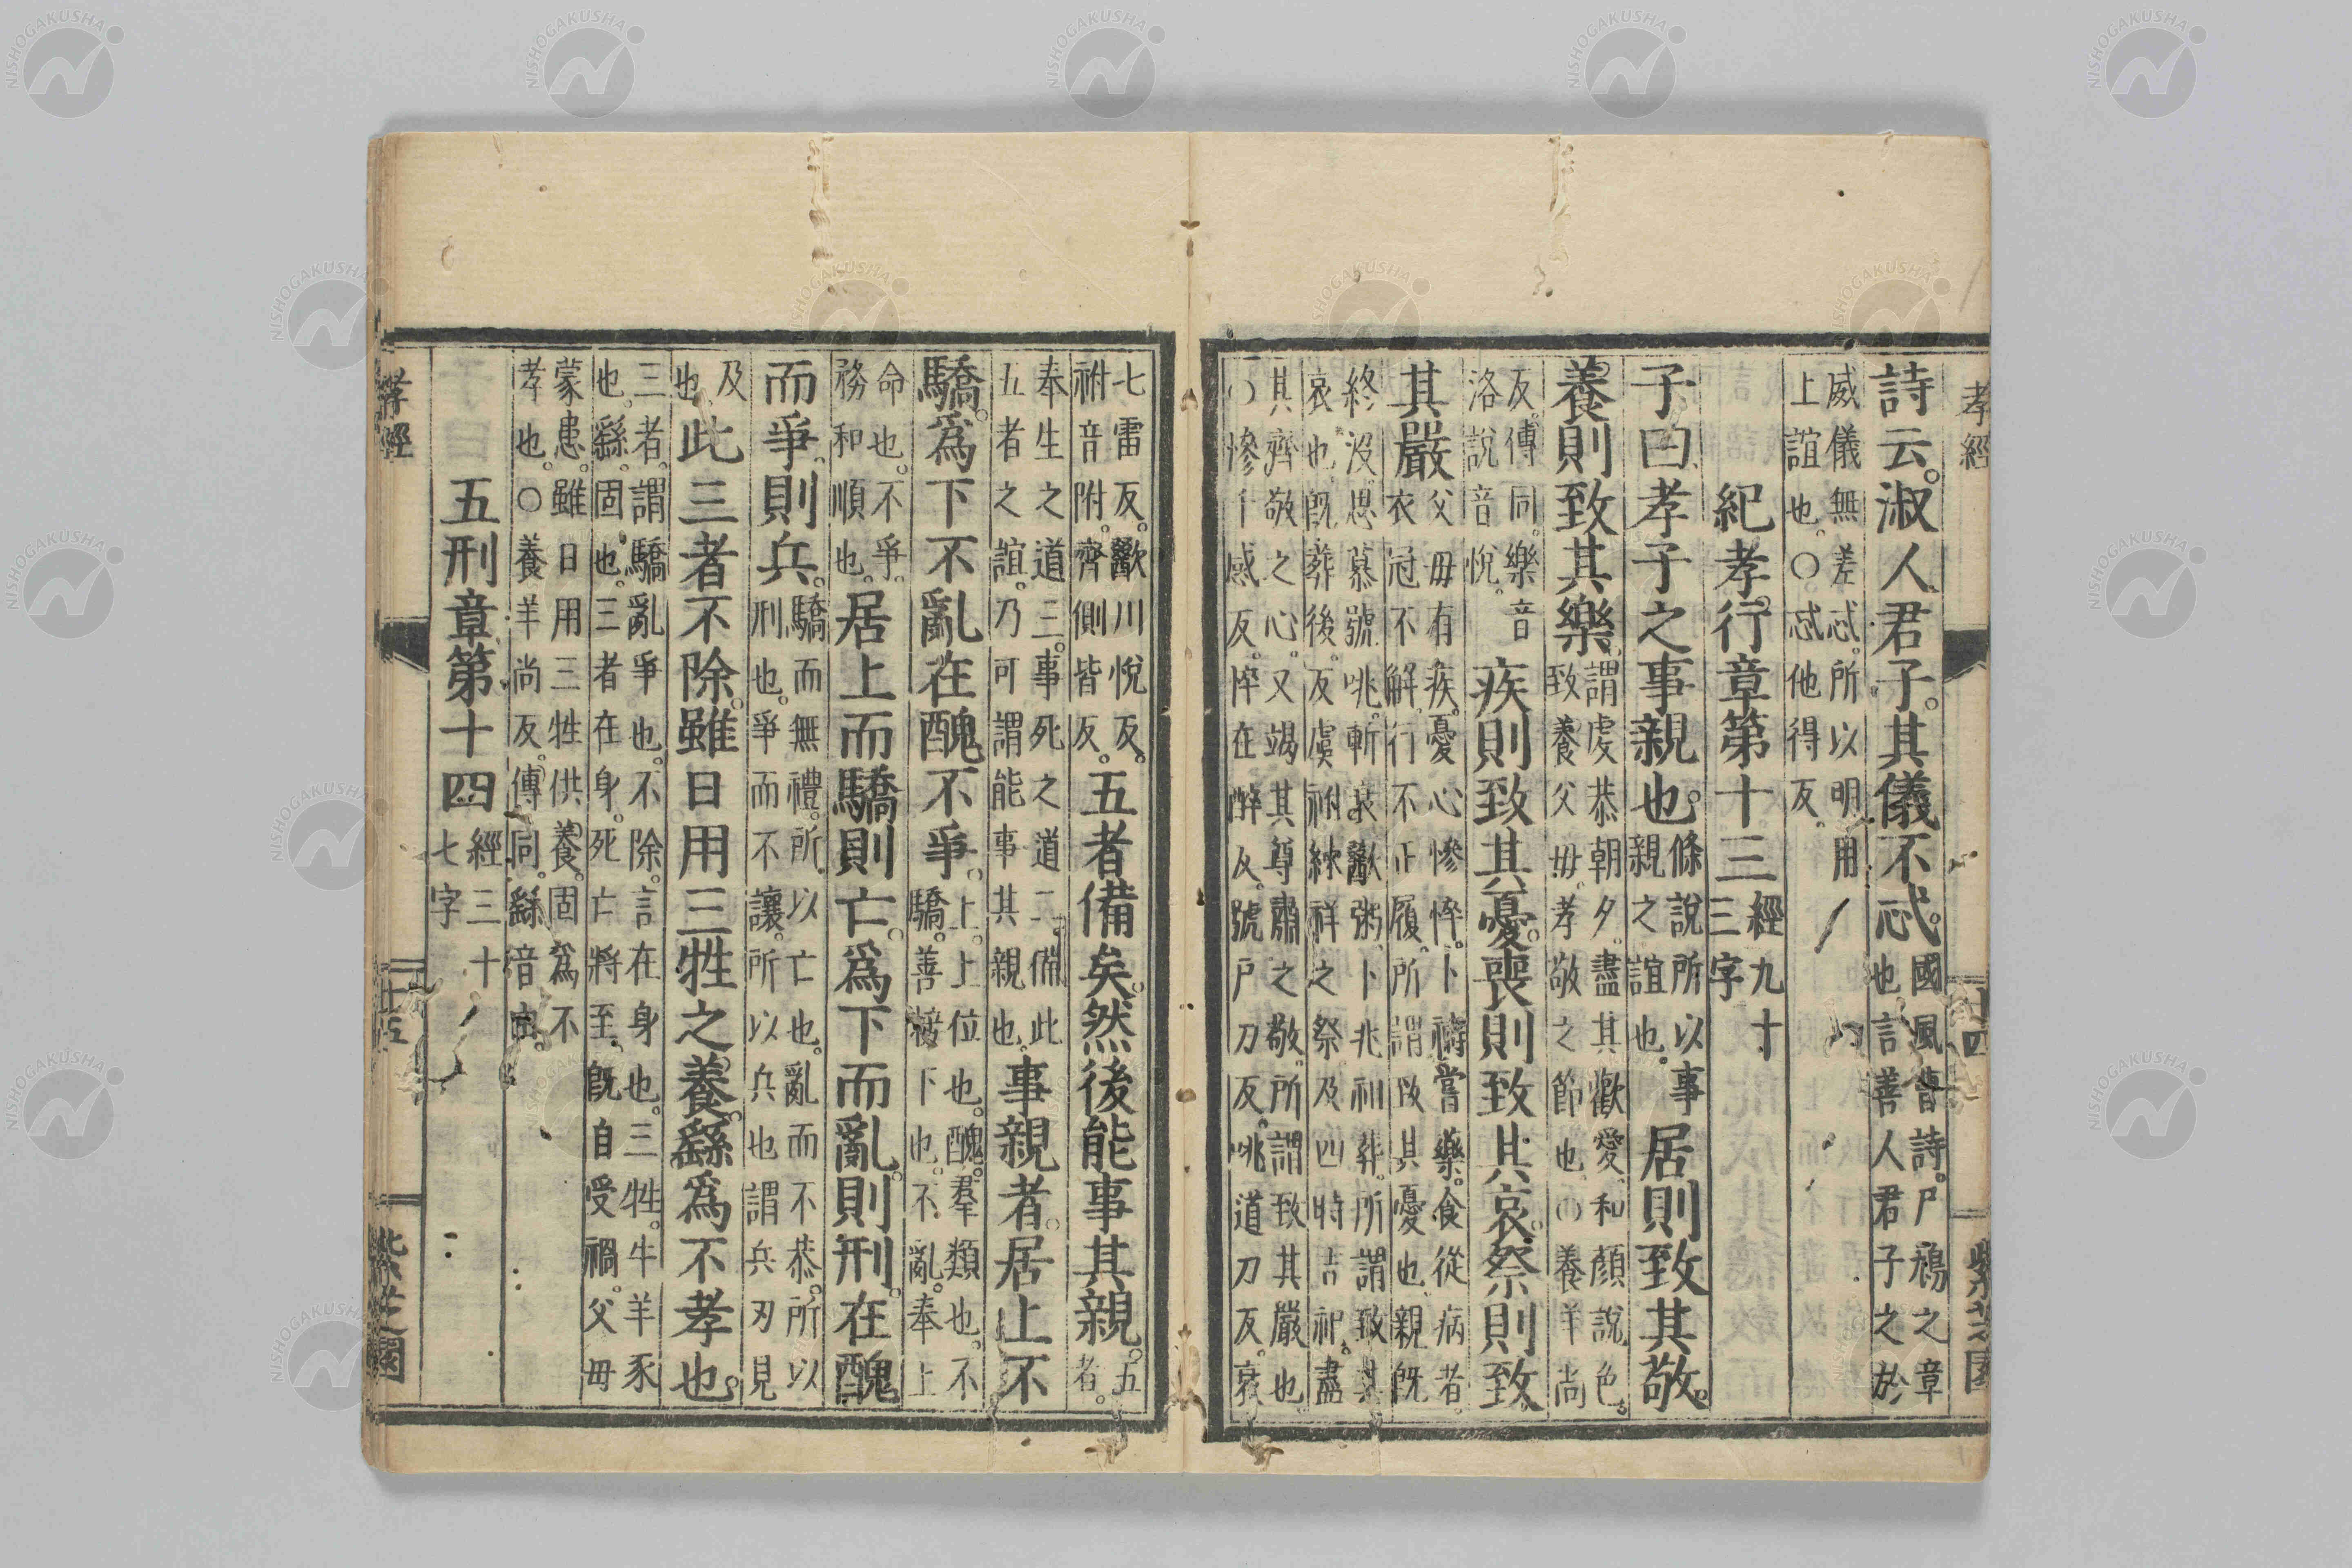 孝經 十四 紫芝園
詩云。淑人君子。其儀不忒。國風曹詩。尸鳲之章也言善人君子之於
威儀無差忒。所以明用上誼也。○忒他得反。
紀孝行章第十三經九十三字
子曰孝子之事親也。條說所以事親之誼也。居則致其敬。
養則致其樂。謂虔恭朝夕。盡其歡愛。和顏說色。致養父毋。孝敬之節也○養羊尚
反。傳同。樂音洛說音悅。疾則致其憂。喪則致其哀。祭則致
其嚴父毋有疾。憂心慘悴。卜禱嘗藥。食從病者。衣冠不解。行不正履。所謂致其憂也親旣
終沒。思慕號咷。斬衰歠粥、卜兆祖葬。所謂致其哀也。旣葬後。反虞祔練祥之祭及四時吉祀。盡
其齊敬之心。又竭其尊肅之敬。所謂致其嚴也○慘千感反。悴在醉反。號戶刀反。咷道刀反。衰
七雷反。歠川悅反。祔音附。齊側皆反。五者備矣。然後能事其親。五者。
奉生之道三。事死之道二。備此五者之誼。乃可謂能事其親也。事親者。居上不
驕。爲下不亂在醜不爭。上。上位也。醜。羣類也。不驕。善接下也。不亂。奉上
命也。不爭。務和順也。居上而驕則亡。爲下而亂。則刑。在醜
而爭。則兵。驕而無禮。所以亡也。亂而不恭。所以刑也。爭而不讓。所以兵也謂兵刃見
及也。此三者不除。雖日用三牲之養。繇爲不孝也。
三者。謂驕亂爭也。不除。言在身也。三牲。牛羊豕也。繇。固也。三者在身。死亡將至。旣自受禍。父毋
蒙患。雖日用三牲供養。固爲不孝也。○養羊尚反。傳同。繇音由。
五刑章第十四經三十七字
孝經 十五 紫芝園
NISHOGAKUSHA